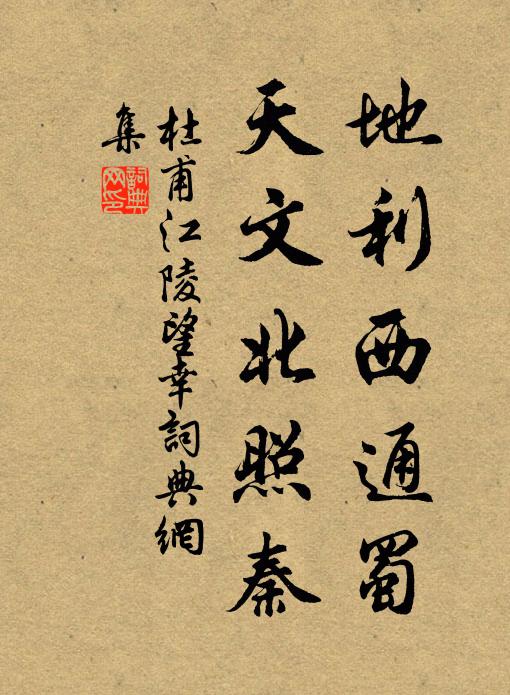 地利西通蜀
天文北照秦
杜甫江陵望幸詞典網
集
詞典
网印